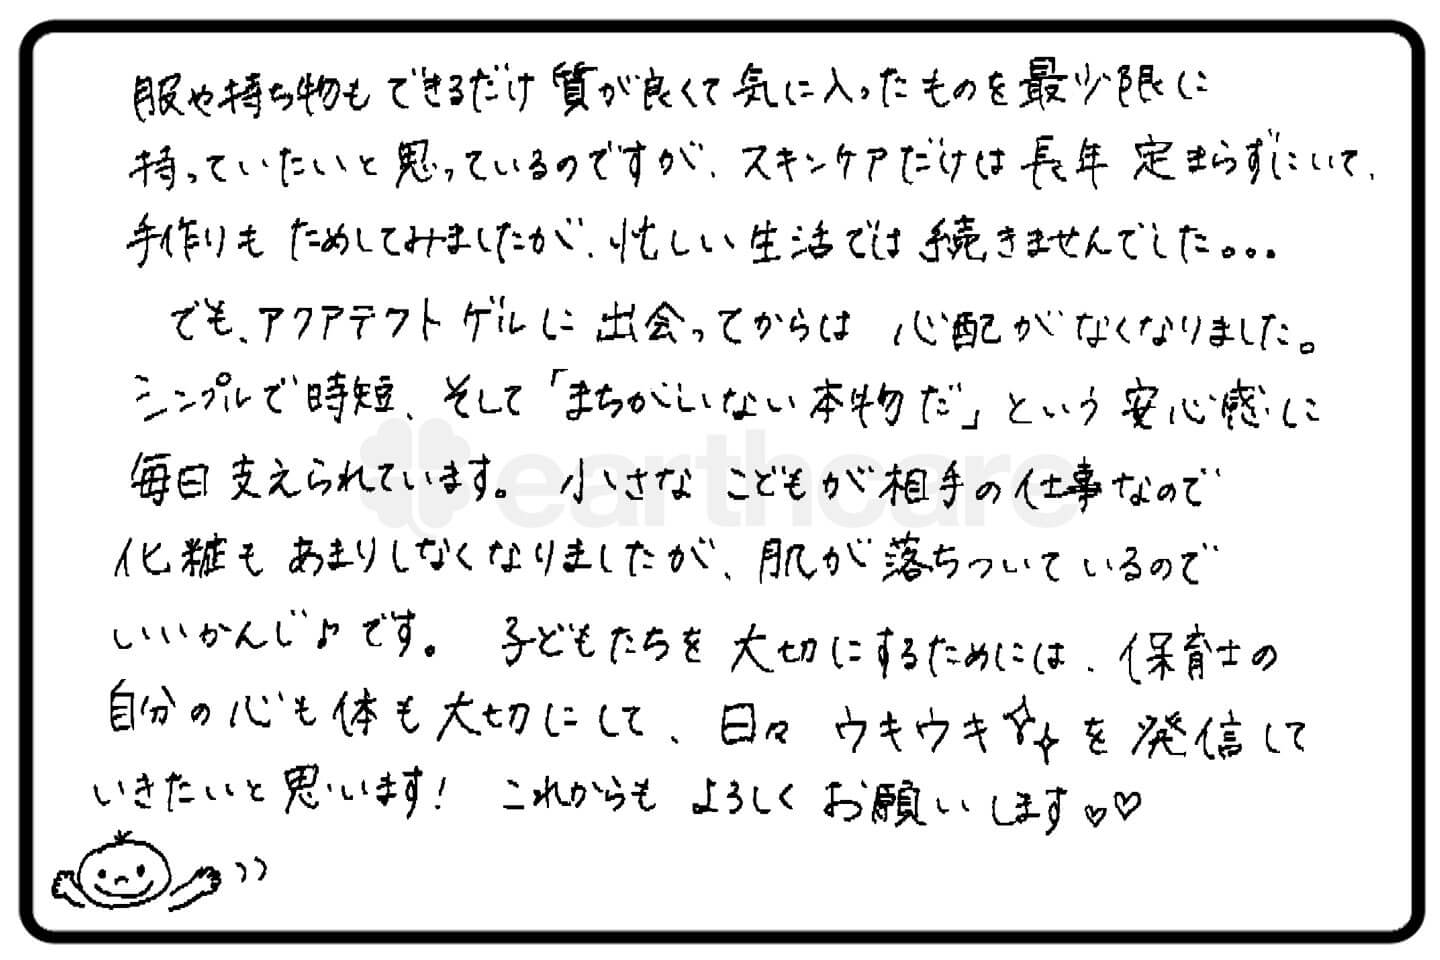 服や持ち物もできるだけ質が良くて気に入ったものを最少限に
持っていたいと思っているのですが、スキンケアだけは長年定まらずにいて、
手作りもためしてみましたが、忙しい生活では続きませんでした。。。
でも、アクアテクトゲルに出会ってからは心配がなくなりました。
シンプルで時短、そして「まちがいない本物だ」という安心感に
毎日支えられています。小さなこどもが相手の仕事なので
化粧もあまりしなくなりましたが、肌が落ちついているので
いいかんじ♪です。子どもたちを大切にするためには、保育士の
自分の心も体も大切にして、日々ウキウキ✨を発信して
いきたいと思います！これからもよろしくお願いします♡♡
earthcare